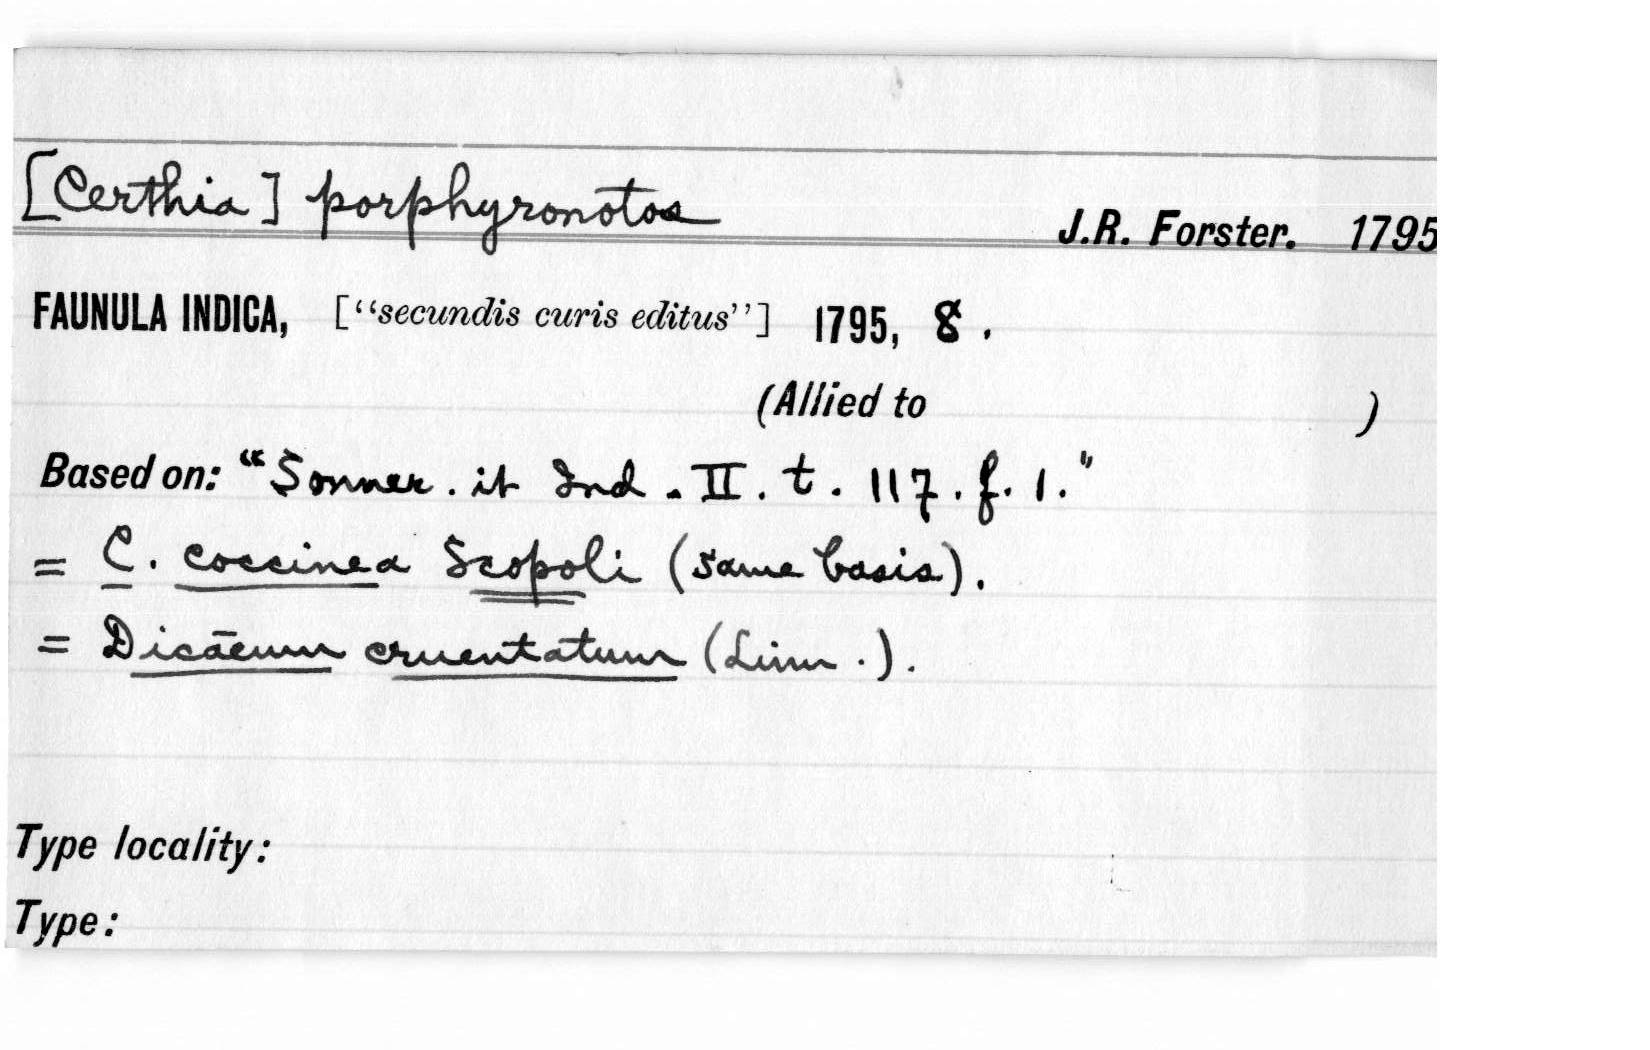 [Certhia] porphyronotos
J.R. Forster. 1795
FAUNULA INDICA, [“secundis curis editus”] 1795, 8.
(Allied to )
Based on: "Sonner. it Ind. II. t. 117. f. 1."
= C. coccinea Scopoli (same basis).
= Dicaeum cruentatum (Linn.).
Type locality:
Type: